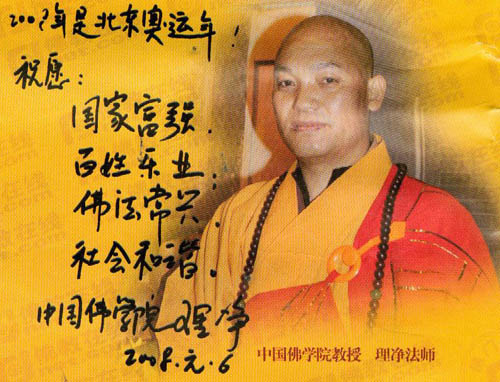 2008年是北京奥运年!
祝愿:
国家富强.
百姓乐业;
佛法常兴.
社会和谐。
中国佛学院 理净
2008.元.6
中国佛学院教授 理净法师